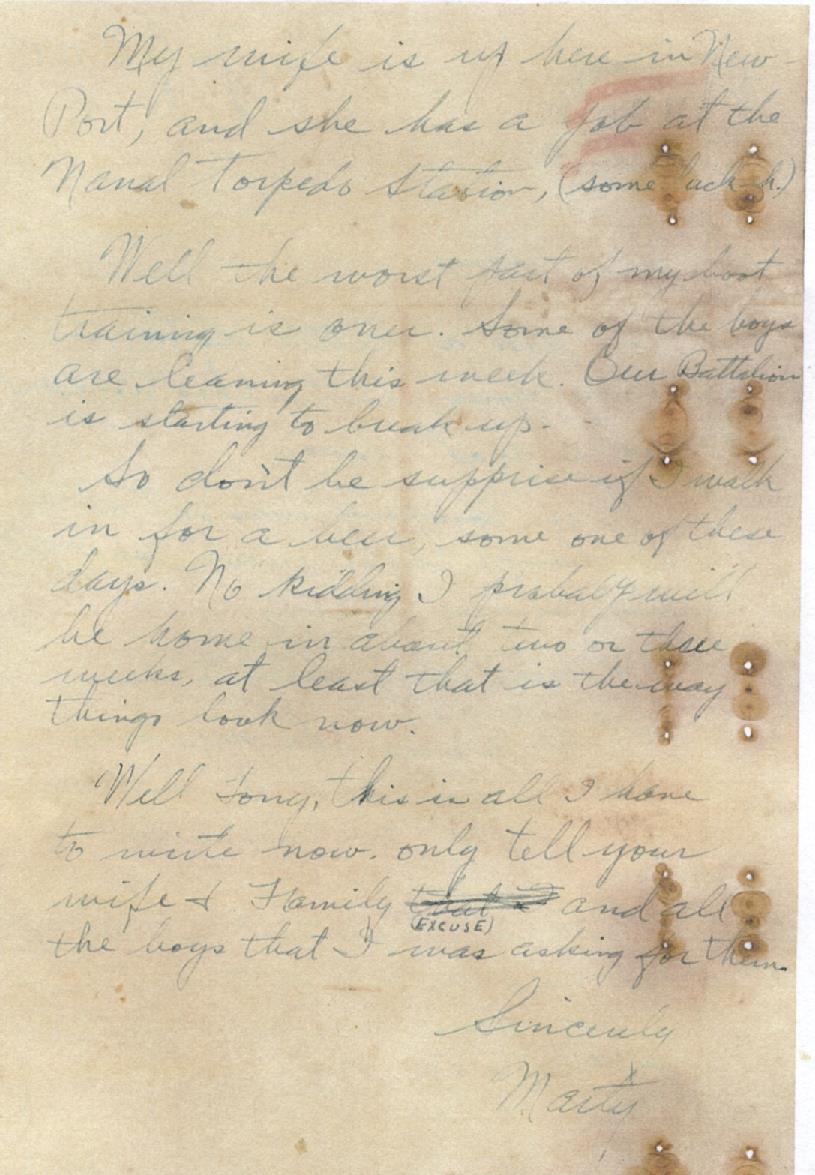 My wife is up here in New-
Port, and she has a job at the
Naval Torpedo Station, (some luck eh.)
Well the worst part of my boot
training is over. Some of the boys
are leaving this week. Our Battalion
is starting to break up.
So don't be supprise if I walk
in for a beer, some one of these
days. No kidding I probaly will
be home in about two or three
weeks, at least that is the way
things look now.
Well Tony, this is all I have
to write now. only tell your
wife & Family and all
(EXCUSE)
the boys that I was asking for them.
Sincerly
Marty